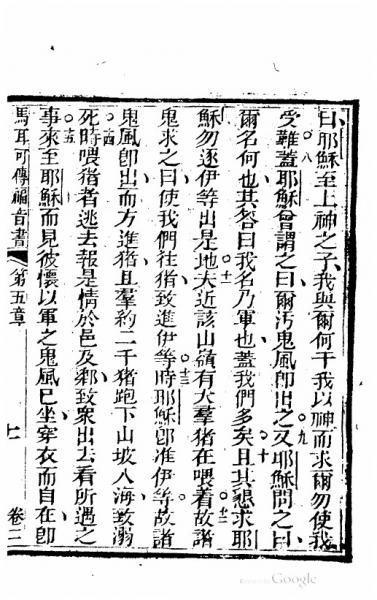 曰耶穌至上神之子我與爾何干我以神而求爾勿使我
受難蓋耶穌曾謂之曰爾汚鬼風卽出之又耶穌問之曰
爾名何也其答曰我名乃軍也蓋我們多矣且其懇求耶
穌勿逐伊等出是地夫近該山嶺有大羣猪在喂着故諸
鬼求之曰使我們往猪致進伊等時耶穌卽准伊等故諸
鬼風卽出而方進猪且羣約二千猪跑下山坡入海致溺
死時喂猪者逃去報是情於邑及鄉致衆出去看所遇之
事來至耶穌而見彼懷以軍之鬼風已坐穿衣而自在卽
馬耳可傳福音書 第五章 七 卷二
八
九
十
十一
十二
十三
十四
十五
Google